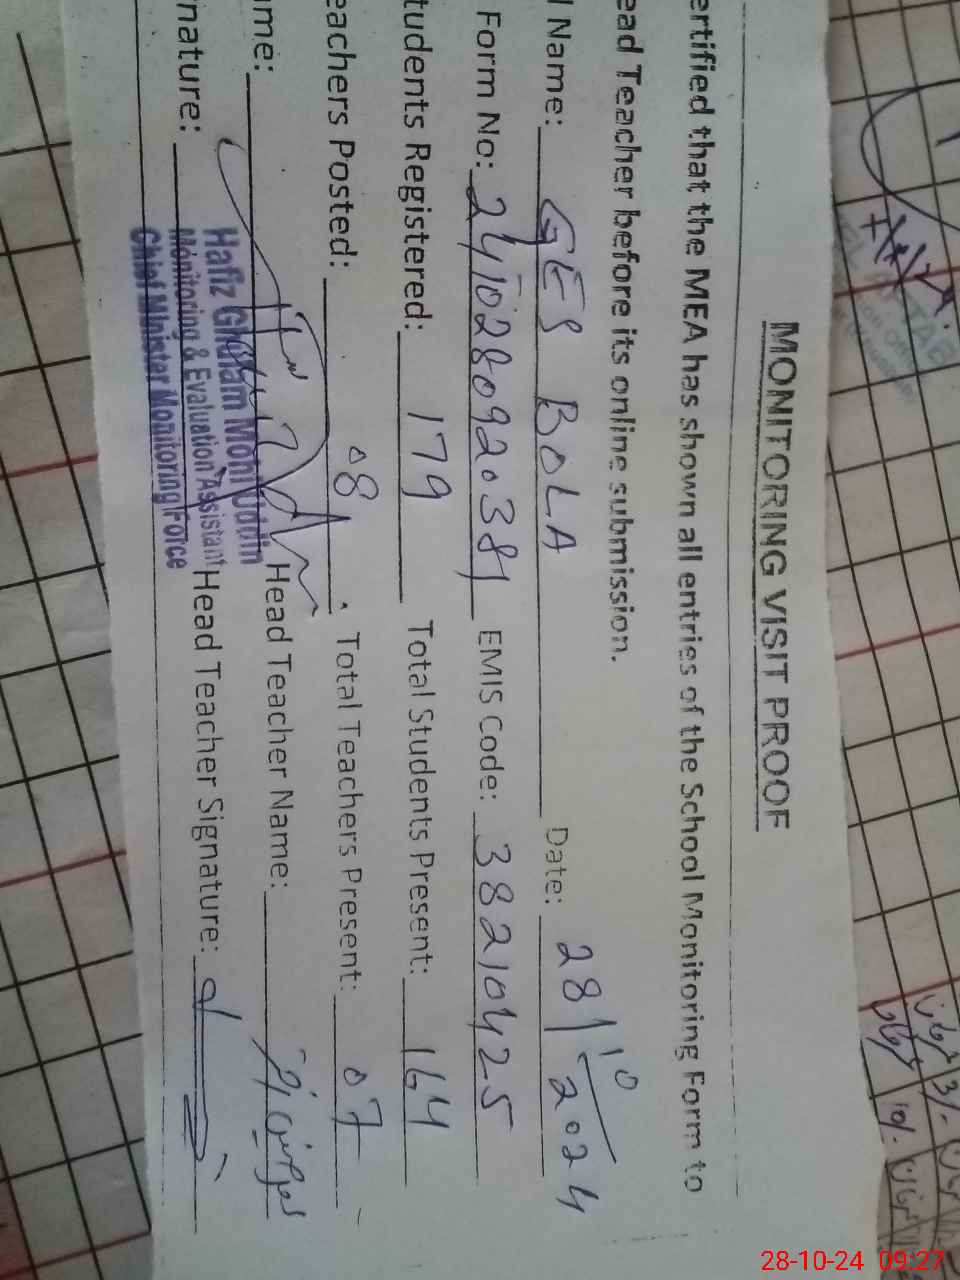 MONITORING VISIT PROOF
ertified that the MEA has shown all entries of the School Monitoring Form to
ead Teacher before its online submission.
l Name: GES BOLA Date: 28/10/2024
Form No: EMIS Code: 38210425
tudents Registered: 179 Total Students Present: 164
eachers Posted: 08 Total Teachers Present: 07
ame: Head Teacher Name:
nature: Head Teacher Signature:
Hafiz Ghulam Mohi Uddin
Monitoring & Evaluation Assistant
Chief Minister Monitoring Force
28-10-24 09:27